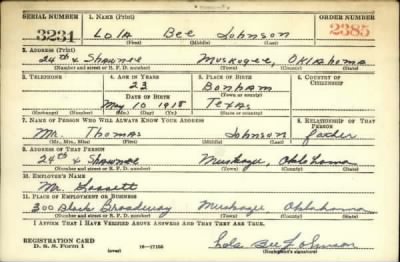 SERIAL NUMBER 1. NAME (Print) ORDER NUMBER
3231 Lola Bee Johnson 2385
(First) (Middle) (Last)
2. ADDRESS (Print)
24th & Shawnee Muskogee, Oklahoma
(Number and street or R. F. D. number) (Town) (County) (State)
3. TELEPHONE 4. AGE IN YEARS 5. PLACE OF BIRTH 6. COUNTRY OF CITIZENSHIP
23 Bonham
DATE OF BIRTH (Town or county)
May 10 1918 Texas
(Exchange) (Number) (Mo.) (Day) (Yr.) (State or country)
7. NAME OF PERSON WHO WILL ALWAYS KNOW YOUR ADDRESS 8. RELATIONSHIP OF THAT PERSON
Mr. Thomas Johnson father
(Mr., Mrs., Miss) (First) (Middle) (Last)
9. ADDRESS OF THAT PERSON
24th & Shawnee Muskogee Oklahoma
(Number and street or R. F. D. number) (Town) (County) (State)
10. EMPLOYER'S NAME
Mr.
11. PLACE OF EMPLOYMENT OR BUSINESS
300 Block Broadway Muskogee Oklahoma
(Number and street or R. F. D. number) (Town) (County) (State)
I AFFIRM THAT I HAVE VERIFIED ABOVE ANSWERS AND THAT THEY ARE TRUE.
REGISTRATION CARD
D. S. S. Form 1 (over) 16-17105 Lola Bee Johnson
(Registrant's signature)